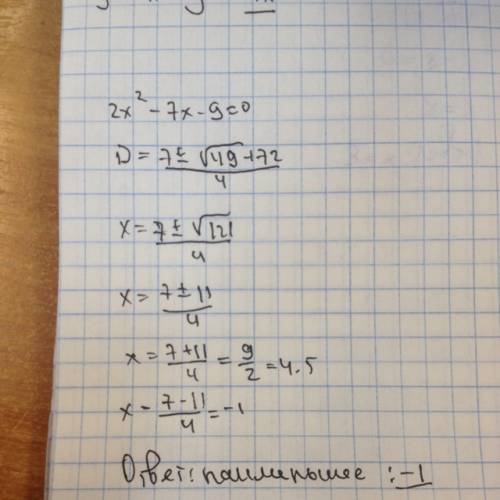 2x² - 7x - 9 = 0
D = (7 ± √49 + 72)/4
x = (7 ± √121)/4
x = (7 ± 11)/4
x = (7 + 11)/4 = 9/2 = 4.5
x - (7 - 11)/4 = -1
Ответ: наименьшее : -1